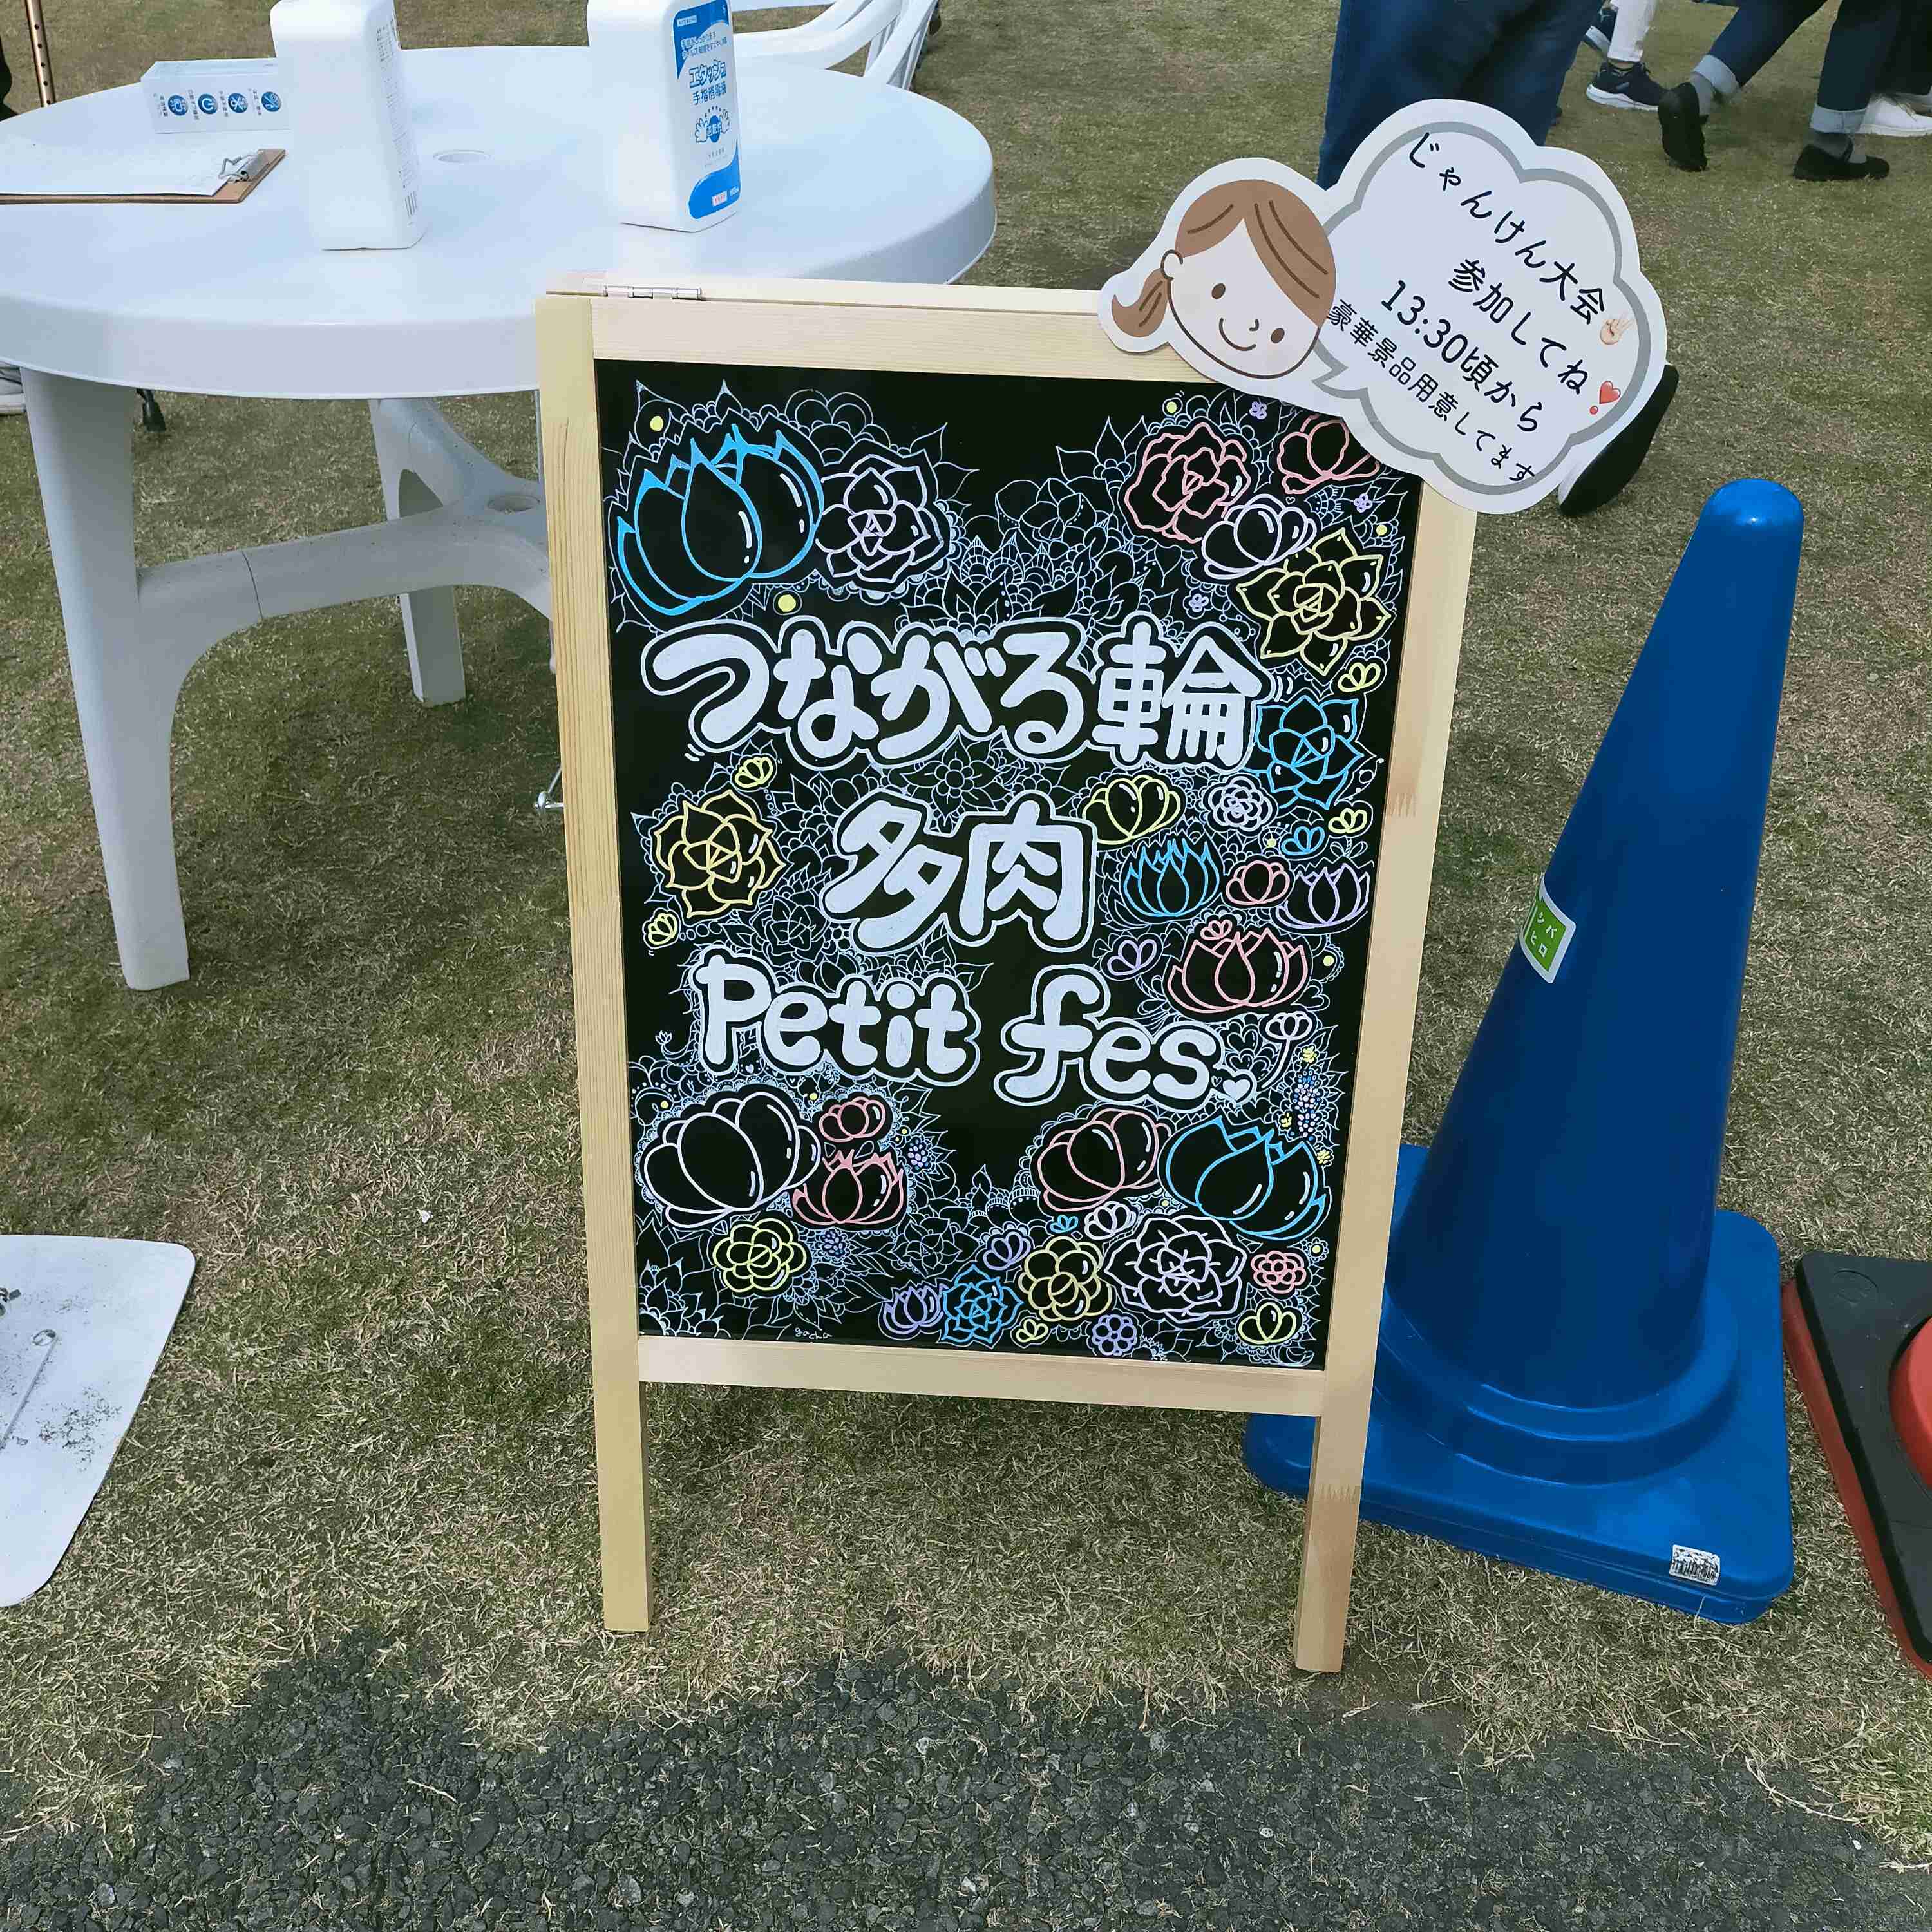 エタッシュ
手指消毒液
じゃんけん大会✌🏻
参加してね❣️
13:30頃から
豪華景品用意してます
つながる輪
多肉
Petit fes.
gacha
シバ
ヒロ